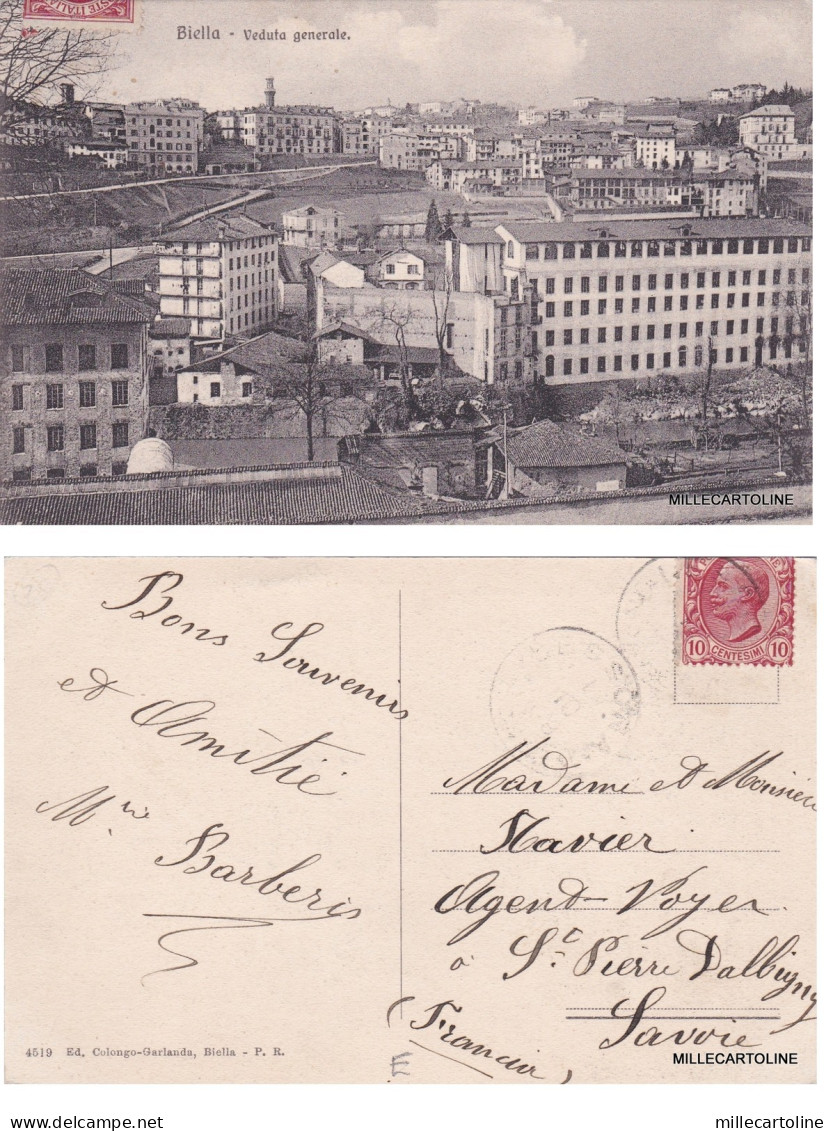 Biella - Veduta generale.
MILLECARTOLINE
10 CENTESIMI 10
Bons Souvenirs
et Amitié
Mme Barberis
Madame et Monsieur
Agent-Voyer
à St Pierre Dalbigny
Savoie
(Francia)
4519 Ed. Colongo-Garlanda, Biella - P. R.
E
MILLECARTOLINE
delcampe.net
millecartoline